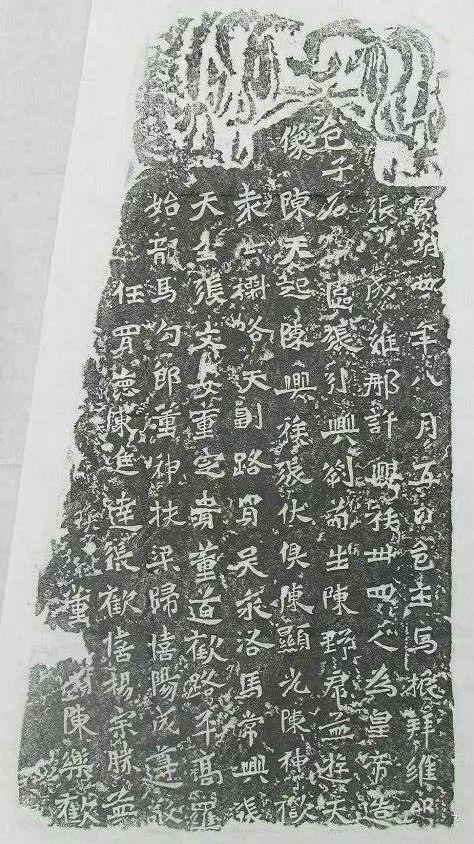 景明四年八月五日邑主馬振拜維那
張子成維那許興族卅四人為皇帝造
邑子石像一區張引興劉苟生陳野虎孟遊天
像陳天起陳興族張伏俱陳顯光陳神歡
路天副路買吳永洛馬常興張
天生張文安董定貴董道歡路平高
始馬勾郎董神扶梁歸憘陽成遵敬
任買德陳進達張歡憘楊宗勝孟
董陳樂歡